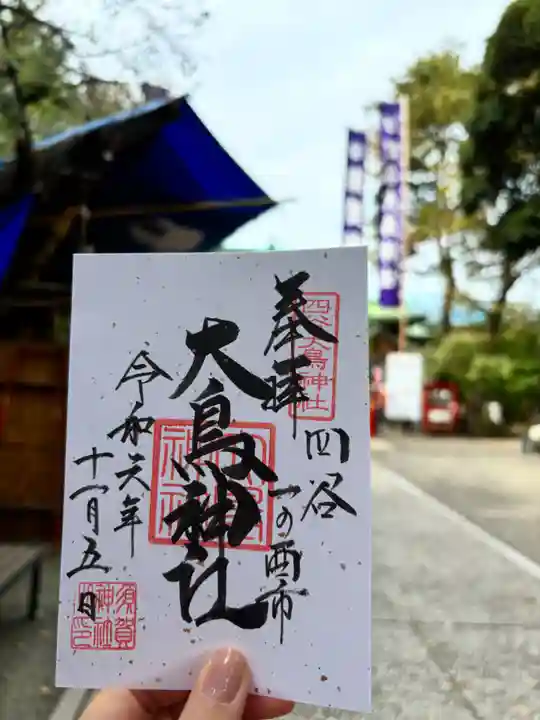 奉拝
四谷大鳥神社
四谷
一の酉市
大鳥神社
令和元年
十一月五日
須賀
神社